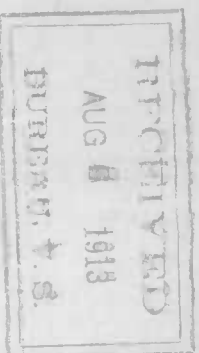 RECEIVED
AUG 1913
BUREAU V. S.